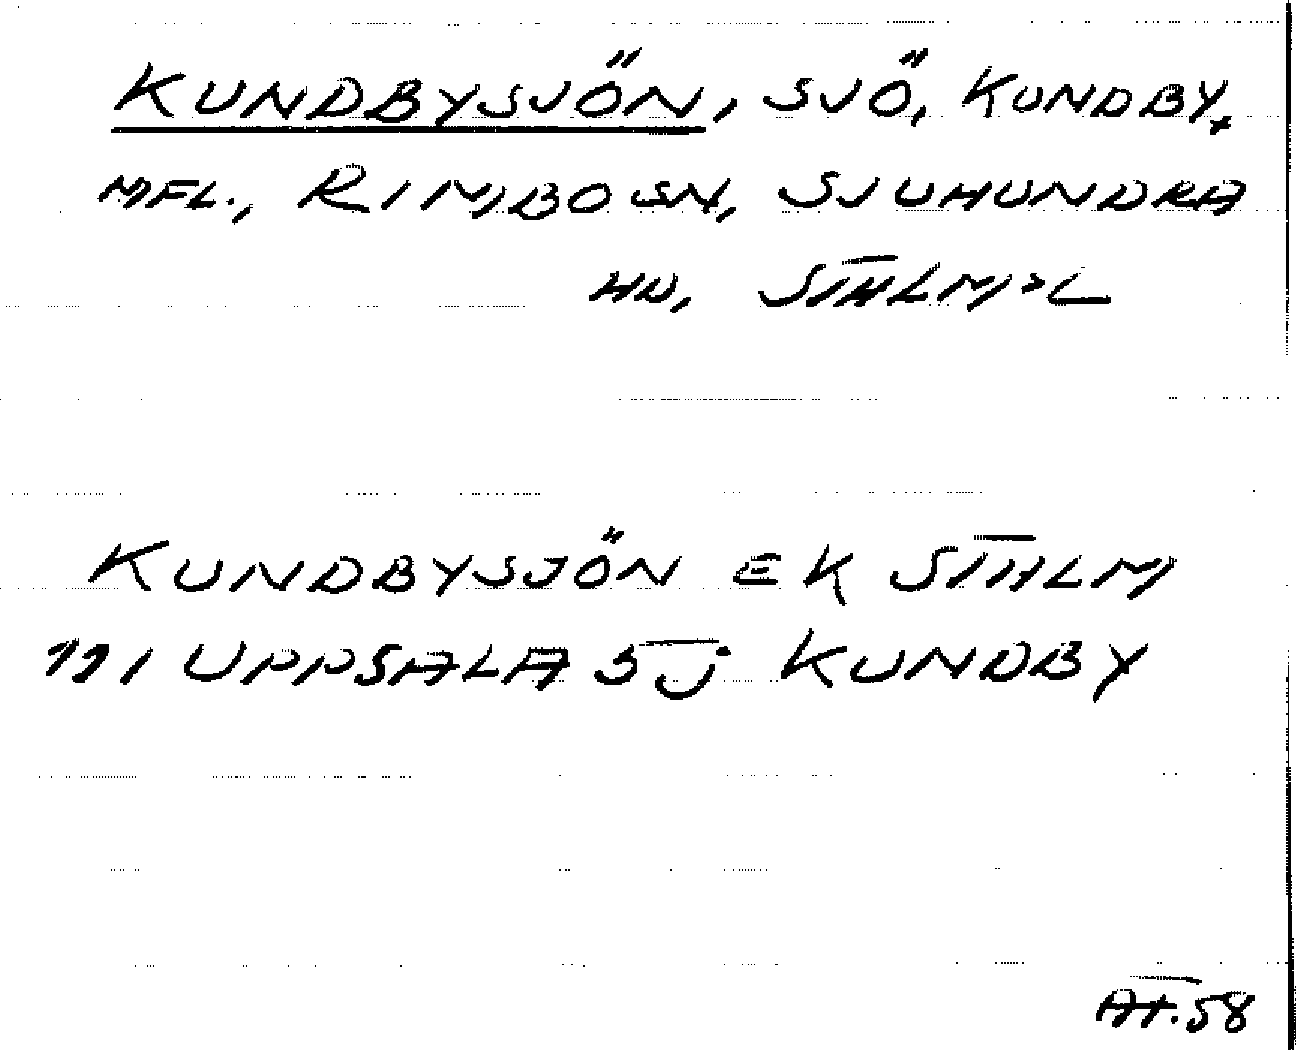 KUNDBYSJÖN, SJÖ, KUNDBY,
MFL., RIMBO SN, SJUHUNDRA
HD, STHLM:L
KUNDBYSJÖN EK STHLM
111 UPPSALA 5j KUNDBY
AT.58